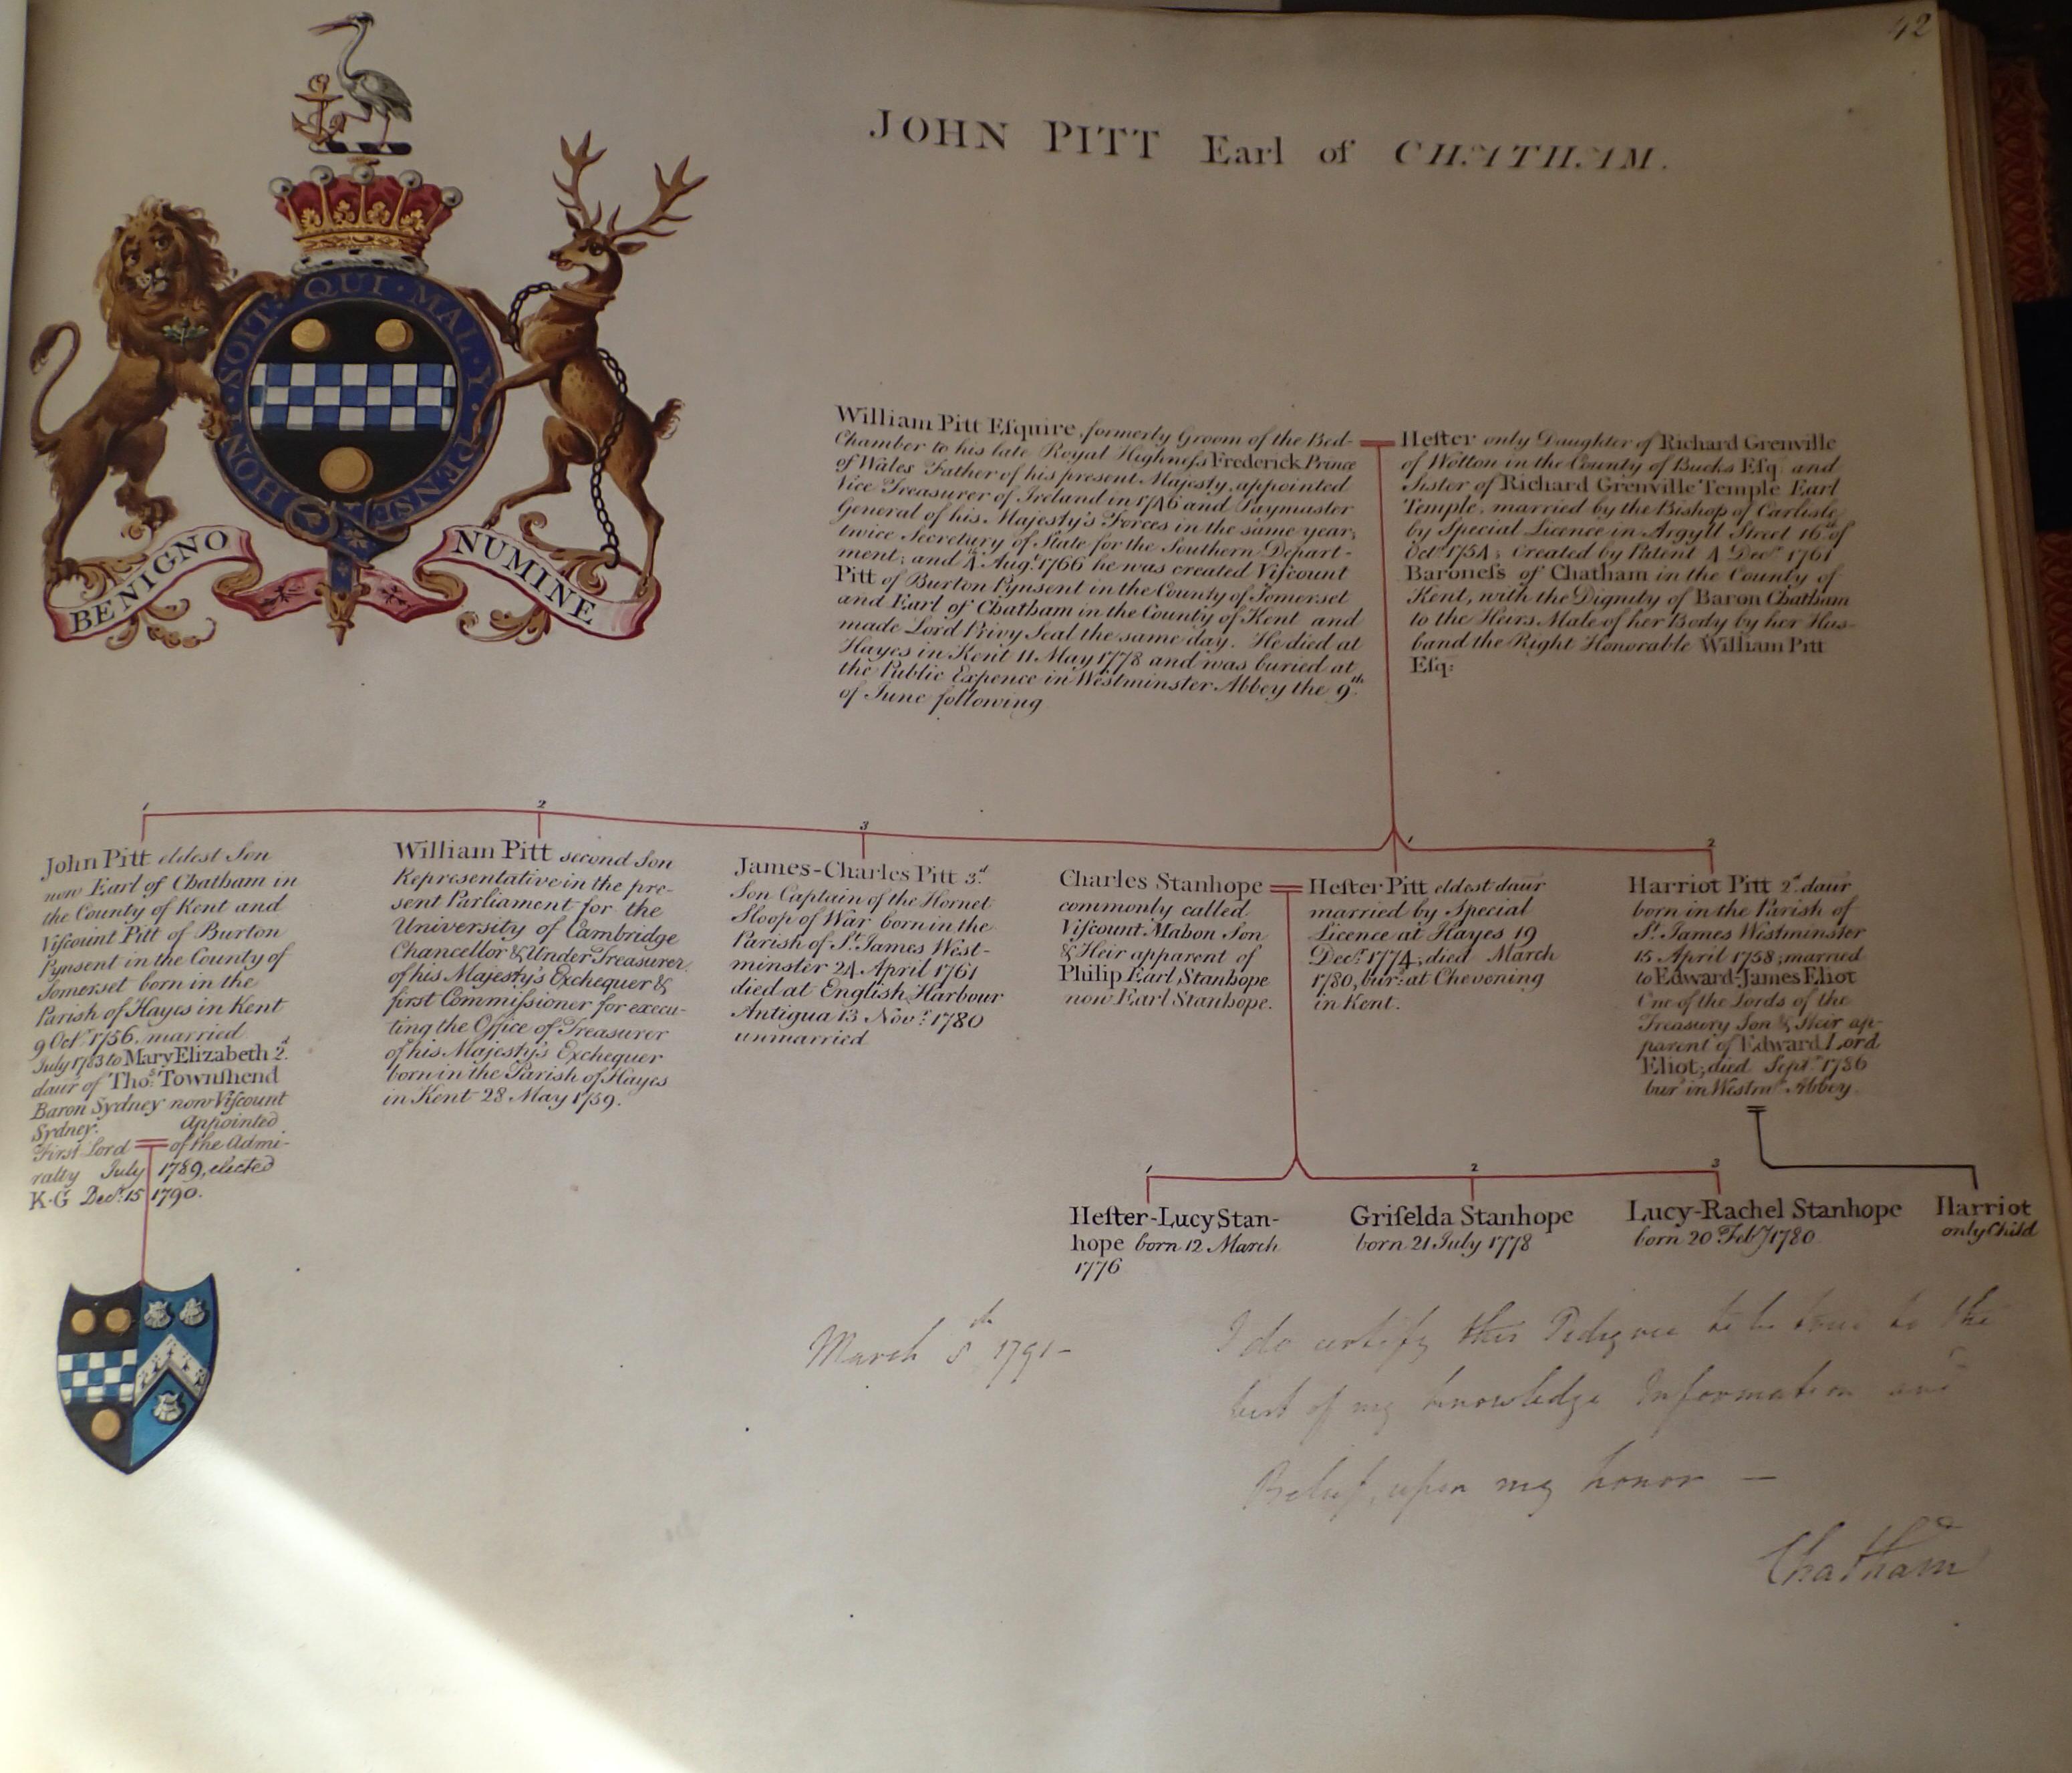 42
JOHN PITT Earl of CHATHAM.
HONI · SOIT · QUI · MAL · Y · PENSE
BENIGNO NUMINE
William Pitt Eſquire, formerly Groom of the Bed-
Chamber to his late Royal Highneſs Frederick Prince
of Wales Father of his present Majesty, appointed
Vice Treasurer of Ireland in 1746 and Paymaster
General of his Majesty's Forces in the same year;
twice Secretary of State for the Southern Depart-
ment; and 4th Augt 1766 he was created Viſcount
Pitt of Burton Pynsent in the County of Somerset
and Earl of Chatham in the County of Kent and
made Lord Privy Seal the same day. He died at
Hayes in Kent 11 May 1778 and was buried at
the Public Expence in Westminster Abbey the 9th
of June following
Heſter only Daughter of Richard Grenville
of Wotton in the County of Bucks Eſq and
Sister of Richard Grenville Temple Earl
Temple, married by the Bishop of Carlisle
by Special Licence in Argyll Street 16th of
Octr 1754; Created by Patent 4 Decr 1761
Baroneſs of Chatham in the County of
Kent, with the Dignity of Baron Chatham
to the Heirs Male of her Body by her Hus-
band the Right Honorable William Pitt
Eſq:
1 2 3 1 2
John Pitt eldest Son
now Earl of Chatham in
the County of Kent and
Viſcount Pitt of Burton
Pynsent in the County of
Somerset born in the
Parish of Hayes in Kent
9 Octr 1756, married
July 1783 to Mary Elizabeth 2d
daur of Thos Townſhend
Baron Sydney now Viſcount
Sydney. Appointed
First Lord of the Admi-
ralty July 1789, elected
K·G Decr 15 1790.
William Pitt second Son
Representative in the pre-
sent Parliament for the
University of Cambridge
Chancellor & Under Treasurer
of his Majesty's Exchequer &
first Commiſsioner for execu-
ting the Office of Treasurer
of his Majesty's Exchequer
born in the Parish of Hayes
in Kent 28 May 1759.
James-Charles Pitt 3d
Son Captain of the Hornet
Sloop of War born in the
Parish of St James West-
minster 24 April 1761
died at English Harbour
Antigua 13 Novr 1780
unmarried
Charles Stanhope
commonly called
Viſcount Mahon Son
& Heir apparent of
Philip Earl Stanhope
now Earl Stanhope.
Heſter Pitt eldest daur
married by Special
Licence at Hayes 19
Decr 1774; died March
1780, bur: at Chevening
in Kent.
Harriot Pitt 2d daur
born in the Parish of
St James Westminster
15 April 1758; married
to Edward-James Eliot
One of the Lords of the
Treasury Son & Heir ap-
parent of Edward Lord
Eliot; died Septr 1786
bur in Westmr Abbey.
1 2 3
Heſter-Lucy Stan-
hope born 12 March
1776
Griſelda Stanhope
born 21 July 1778
Lucy-Rachel Stanhope
born 20 Feby 1780
Harriot
only Child
March 5th 1791–
I do certify this Pedigree to be true to the
best of my knowledge Information and
Belief, upon my honor —
Chatham